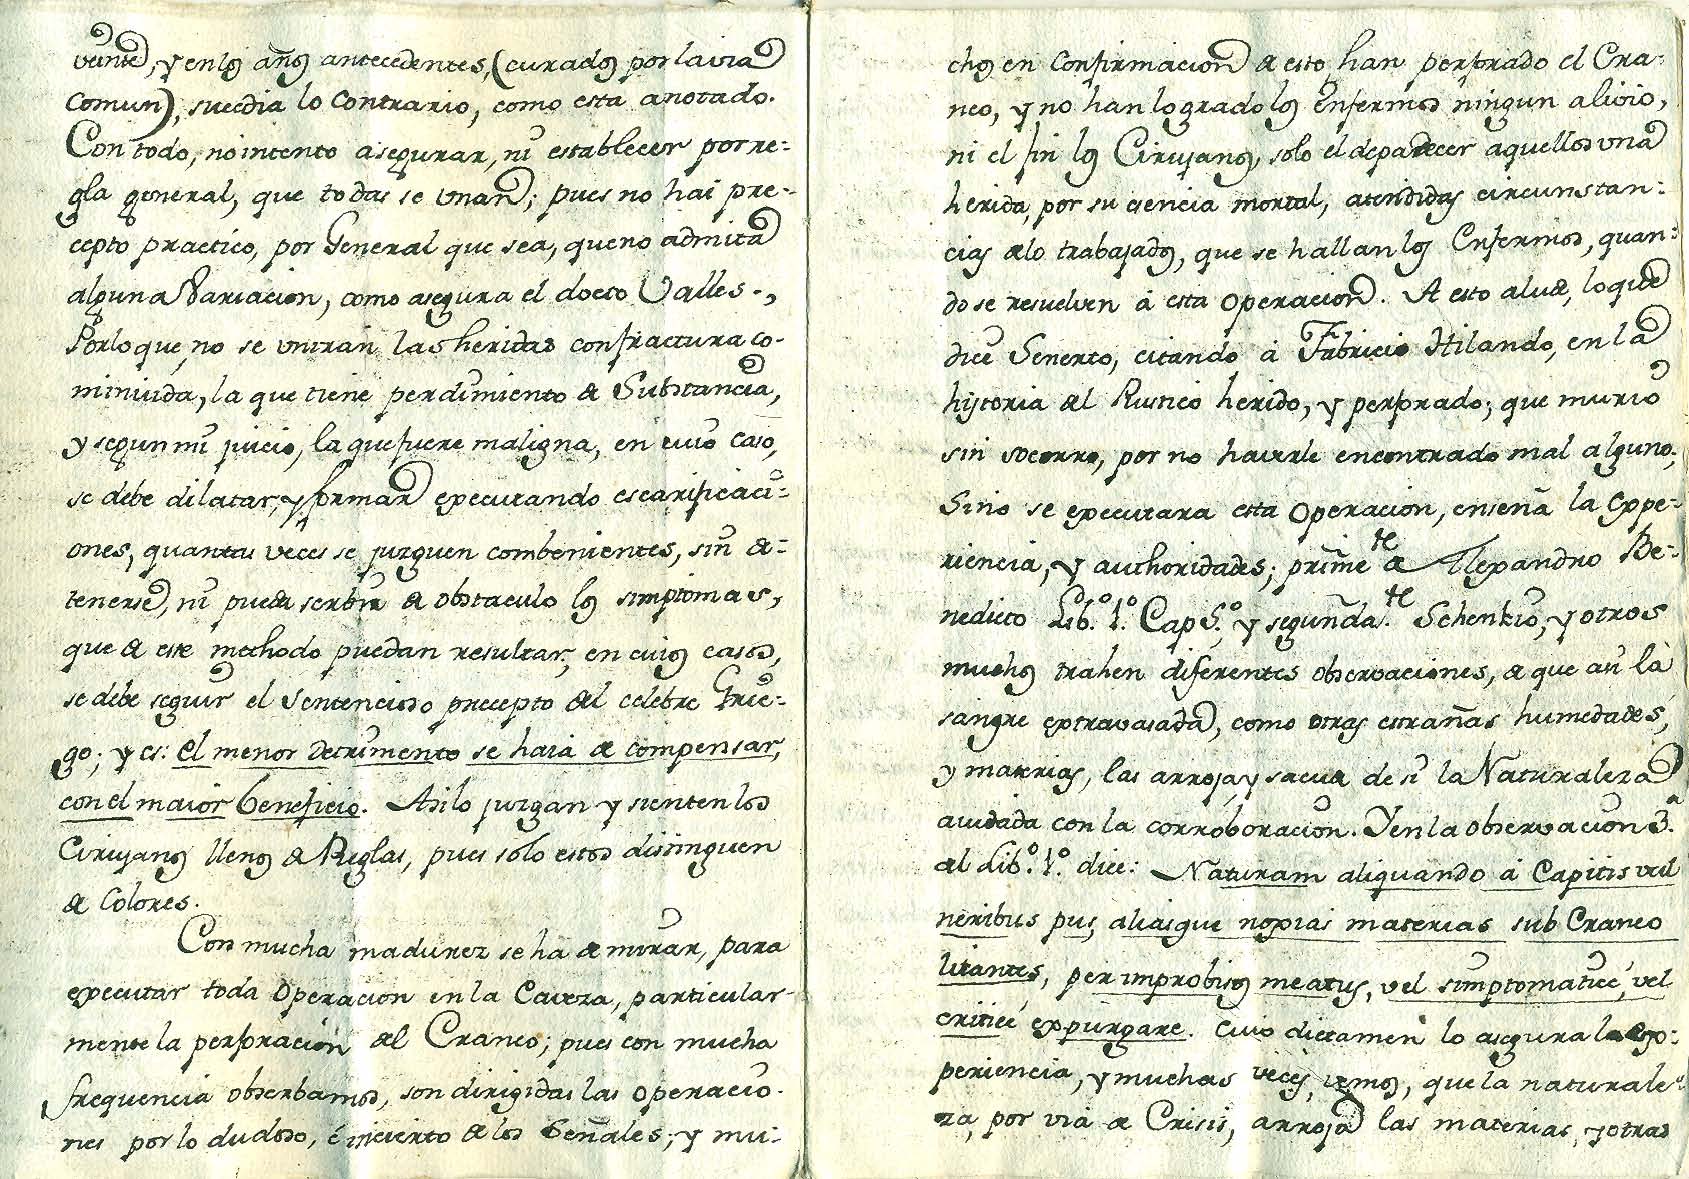 veinte, y en los años antecedentes, (curados por la via
comun), sucedia lo contrario, como esta anotado.
Con todo, no intento asegurar, ni establecer por re-
gla general, que todas se unan; pues no hai pre-
cepto practico, por General que sea, que no admita
alguna Variacion, como asegura el docto Valles.,
Por lo que, no se uniran las heridas con fractura co-
minuida, la que tiene perdimiento de Substancia,
y segun mi juicio, la que fuere maligna, en cuio caso,
se debe dilatar, y formar executando escarificaci-
ones, quantas veces se juzguen combenientes, sin de-
tenerse, ni pueda serbir de obstaculo los simptomas,
que de este methodo puedan resultar, en cuios casos,
se debe seguir el Sentencioso precepto del celebre Grie-
go; y es: el menor Detrimento se haia de compensar,
con el maior beneficio. Asi lo juzgan y sienten los
Cirujanos llenos de Reglas, pues solo estos distinguen
de Colores.
Con mucha madurez se ha de mirar, para
executar toda Operacion en la Caveza, particular-
mente la perforacion del Craneo; pues con mucha
frequencia obserbamos, son dirigidas las operacio-
nes por lo dudoso, é incierto de los Señales; y mu-
chos en Confirmacion de esto han perforado el Cra-
neo, y no han logrado los Enfermos ningun alivio,
ni el fin los Cirujanos, solo el deparecer aquellos una
herida, por su esencia mortal, atendidas circunstan-
cias de lo trabajados, que se hallan los Enfermos, quan-
do se resuelven á esta Operacion. A esto alude, lo que
dice Senerto, citando á Fabricio Hilando, en la
historia del Rustico herido, y perforado; que murio
sin socorro, por no haverle encontrado mal alguno;
Si no se executara esta Operacion, enseña la expe-
riencia, y authoridades; prime.te de Alexandro Be-
nedicto Lib.º 1.º Cap 5.º, y segunda.te Schenkio, y otros
muchos trahen diferentes observaciones, de que aun la
sangre extravasada, como otras estrañas humedades,
y materias, las arroja, y sacude de si la Naturaleza
aiudada con la corroboracion. Y en la observacion 3.ª
del Lib.º 1.º dice: Naturam aliquando á Capitis vul
neribus pus, aliasque noxias materias sub Craneo
litantes, per improbisos meatus, vel simptomaticé, vel
criticé expurgare. Cuio dictamen lo asegura la exp-
periencia, y muchas veces, vemos, que la naturale-
za, por via de Crisis, arroja las materias, y otras